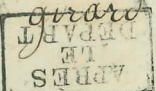 girard
APRÈS
LE
DÉPART